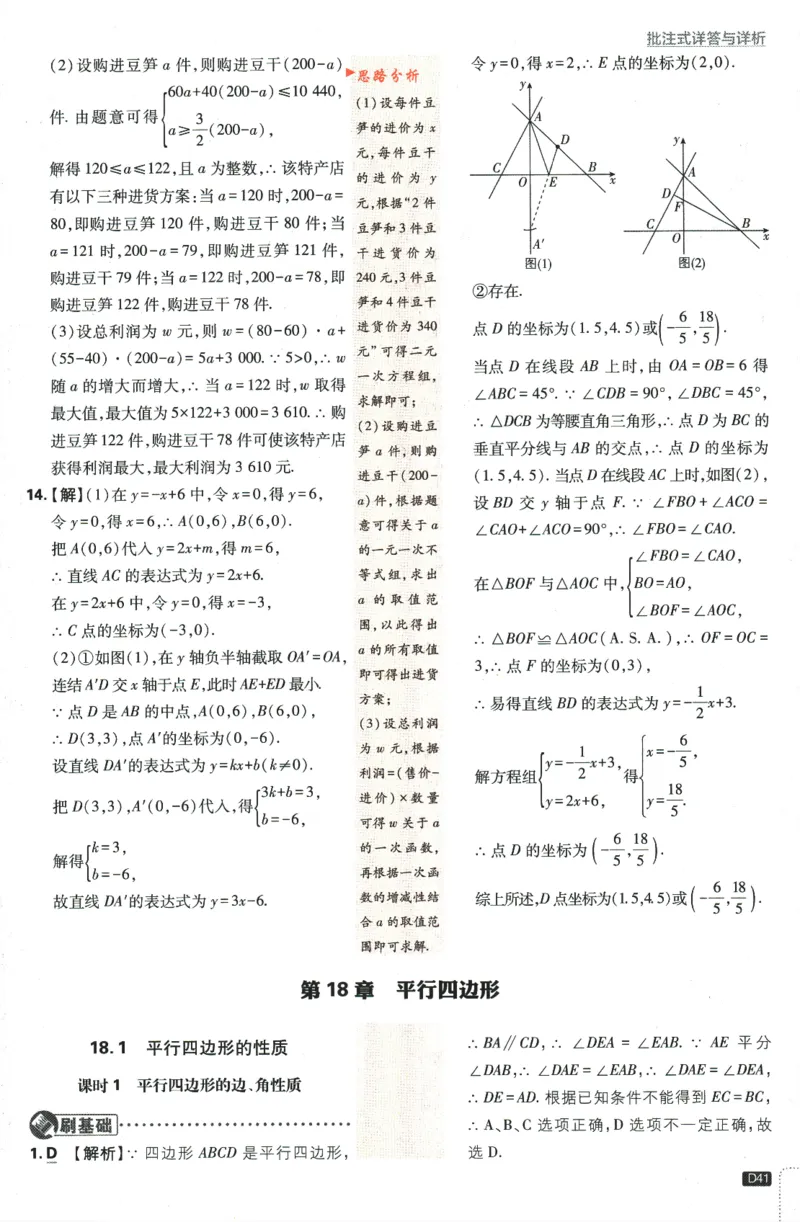 批注式详答与详析
(2)设购进豆笋 a 件,则购进豆干(200-a)
件. 由题意可得{60a+40(200-a)≤10 440,
a≥3/2(200-a),
解得 120≤a≤122,且 a 为整数,∴ 该特产店
有以下三种进货方案:当 a=120 时,200-a=
80,即购进豆笋 120 件,购进豆干 80 件;当
a=121 时,200-a=79,即购进豆笋 121 件,
购进豆干 79 件;当 a=122 时,200-a=78,即
购进豆笋 122 件,购进豆干 78 件.
(3)设总利润为 w 元,则 w=(80-60)·a+
(55-40)·(200-a)=5a+3 000. ∵ 5>0,∴ w
随 a 的增大而增大,∴ 当 a=122 时,w 取得
最大值,最大值为 5×122+3 000=3 610. ∴ 购
进豆笋 122 件,购进豆干 78 件可使该特产店
获得利润最大,最大利润为 3 610 元.
14.【解】(1)在 y=-x+6 中,令 x=0,得 y=6,
令 y=0,得 x=6,∴ A(0,6),B(6,0).
把 A(0,6)代入 y=2x+m,得 m=6,
∴ 直线 AC 的表达式为 y=2x+6.
在 y=2x+6 中,令 y=0,得 x=-3,
∴ C 点的坐标为(-3,0).
(2)①如图(1),在 y 轴负半轴截取 OA′=OA,
连结 A′D 交 x 轴于点 E,此时 AE+ED 最小.
∵ 点 D 是 AB 的中点,A(0,6),B(6,0),
∴ D(3,3),点 A′的坐标为(0,-6).
设直线 DA′的表达式为 y=kx+b(k≠0).
把 D(3,3),A′(0,-6)代入,得{3k+b=3,
b=-6,
解得{k=3,
b=-6,
故直线 DA′的表达式为 y=3x-6.
思路分析
(1)设每件豆
笋的进价为 x
元,每件豆干
的进价为 y
元,根据“2 件
豆笋和 3 件豆
干进货价为
240 元,3 件豆
笋和 4 件豆干
进货价为 340
元”可得二元
一次方程组,
求解即可;
(2)设购进豆
笋 a 件,则购
进豆干(200-
a)件,根据题
意可得关于 a
的一元一次不
等式组,求出
a 的取值范
围,以此得出
a 的所有取值
即可得出进货
方案;
(3)设总利润
为 w 元,根据
利润=(售价-
进价)×数量
可得 w 关于 a
的一次函数,
再根据一次函
数的增减性结
合 a 的取值范
围即可求解.
令 y=0,得 x=2,∴ E 点的坐标为(2,0).
y
A
D
C
O
E
B
x
A′
图(1)
y
A
D
F
C
O
B
x
图(2)
②存在.
点 D 的坐标为(1.5,4.5)或(-6/5,18/5).
当点 D 在线段 AB 上时,由 OA=OB=6 得
∠ABC=45°. ∵ ∠CDB=90°,∠DBC=45°,
∴ △DCB 为等腰直角三角形,∴ 点 D 为 BC 的
垂直平分线与 AB 的交点,∴ 点 D 的坐标为
(1.5,4.5). 当点 D 在线段 AC 上时,如图(2),
设 BD 交 y 轴于点 F. ∵ ∠FBO+∠ACO=
∠CAO+∠ACO=90°,∴ ∠FBO=∠CAO.
在△BOF 与△AOC 中,{∠FBO=∠CAO,
BO=AO,
∠BOF=∠AOC,
∴ △BOF≌△AOC(A. S. A.),∴ OF=OC=
3,∴ 点 F 的坐标为(0,3),
∴ 易得直线 BD 的表达式为 y=-1/2x+3.
解方程组{y=-1/2x+3,
y=2x+6,
得{x=-6/5,
y=18/5.
∴ 点 D 的坐标为(-6/5,18/5).
综上所述,D 点坐标为(1.5,4.5)或(-6/5,18/5).
第 18 章 平行四边形
18.1 平行四边形的性质
课时 1 平行四边形的边、角性质
刷基础
1. D 【解析】∵ 四边形 ABCD 是平行四边形,
∴ BA∥CD,∴ ∠DEA=∠EAB. ∵ AE 平分
∠DAB,∴ ∠DAE=∠EAB,∴ ∠DAE=∠DEA,
∴ DE=AD. 根据已知条件不能得到 EC=BC,
∴ A、B、C 选项正确,D 选项不一定正确,故
选 D.
D41